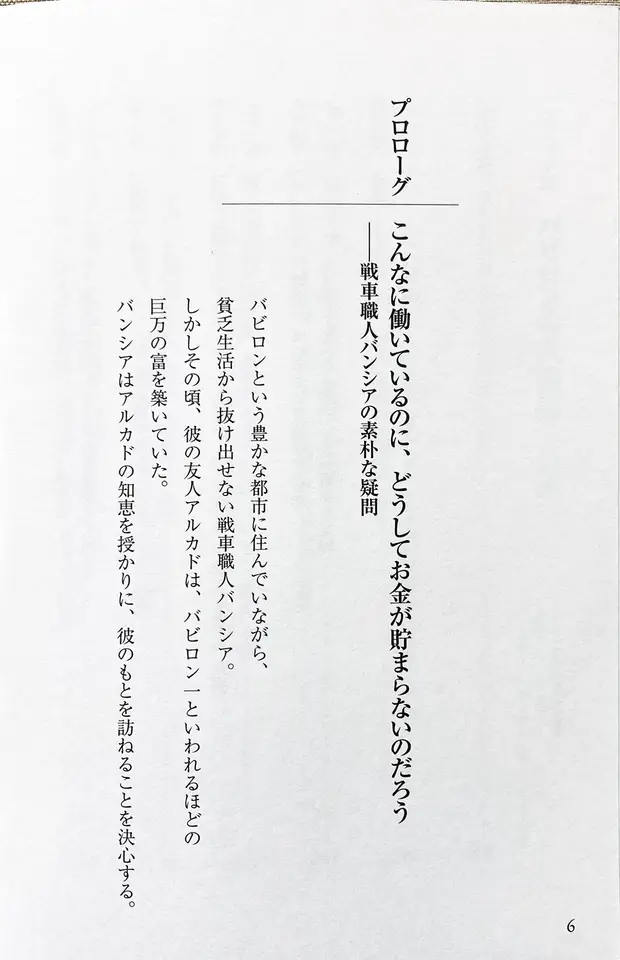 プロローグ
こんなに働いているのに、どうしてお金が貯まらないのだろう
──戦車職人バンシアの素朴な疑問
バビロンという豊かな都市に住んでいながら、
貧乏生活から抜け出せない戦車職人バンシア。
しかしその頃、彼の友人アルカドは、バビロン一といわれるほどの
巨万の富を築いていた。
バンシアはアルカドの知恵を授かりに、彼のもとを訪ねることを決心する。
6